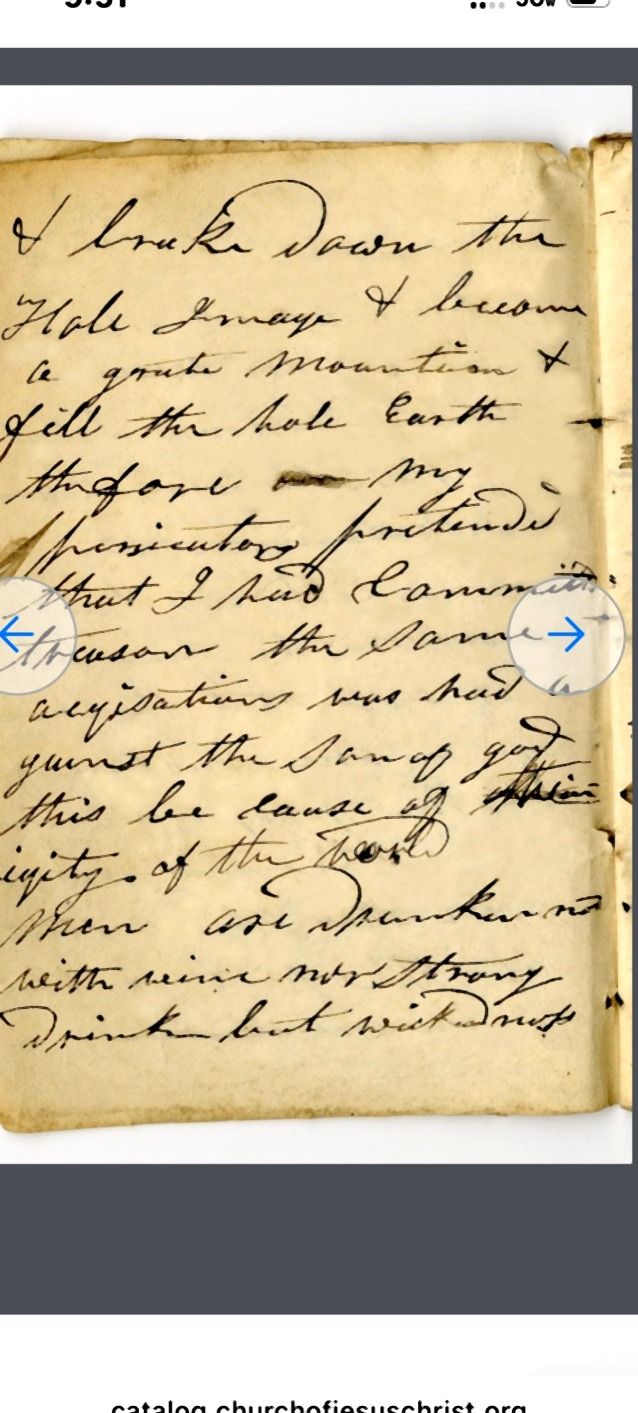 & brake Down the
Hole Image & become
a grate Mountain &
fill the hole Earth
thefore my
persicutors pretended
that I had Committ
treason the Same
aqisations was had a
gainst the Son of god
this be cause of
iqity of the world
Men are Drunken not
with wine nor Strong
Drink but wickedness
catalog.churchofjesuschrist.org